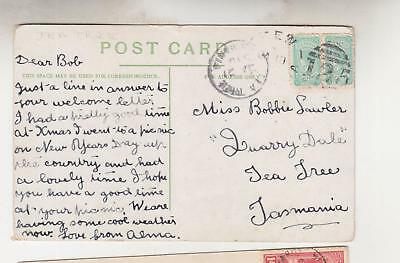 TEA TREE
POST CARD
THIS SPACE MAY BE USED FOR CORRESPONDENCE.
ADDRESS ONLY.
Dear Bob
Just a line in answer to
your welcome letter
I had a pretty good time
at Xmas I went to a picnic
on New Years Day up
the country and had
a lovely time. I hope
you have a good time
at your picnic. We are
having some cool weather
now. Love from Alma.
Miss Bobbie Lawler
"Quarry Dale"
Tea Tree
Tasmania